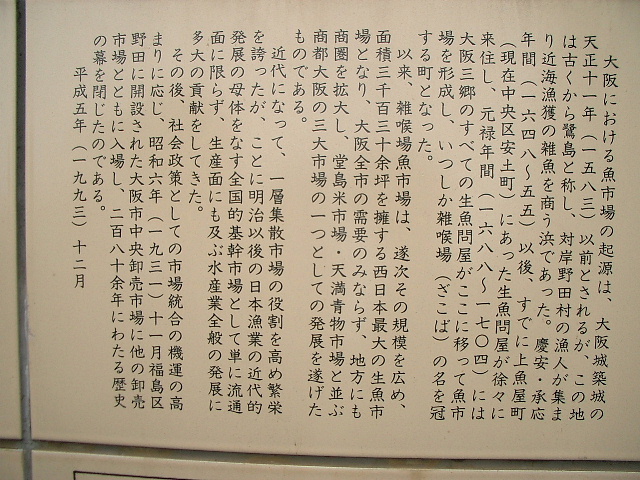 大阪における魚市場の起源は、大阪城築城の
天正十一年（一五八三）以前とされるが、この地
は古くから鷺島と称し、対岸野田村の漁人が集ま
り近海漁獲の雑魚を商う浜であった。慶安・承応
年間（一六四八～五五）以後、すでに上魚屋町
（現在中央区安土町）にあった生魚問屋が徐々に
来住し、元禄年間（一六八八～一七〇四）には
大阪三郷のすべての生魚問屋がここに移って魚市
場を形成し、いつしか雑喉場（ざこば）の名を冠
する町となった。
以来、雑喉場魚市場は、逐次その規模を広め、
面積三千百三十余坪を擁する西日本最大の生魚市
場となり、大阪全市の需要のみならず、地方にも
商圏を拡大し、堂島米市場・天満青物市場と並ぶ
商都大阪の三大市場の一つとしての発展を遂げた
ものである。
近代になって、一層集散市場の役割を高め繁栄
を誇ったが、ことに明治以後の日本漁業の近代的
発展の母体をなす全国的基幹市場として単に流通
面に限らず、生産面にも及ぶ水産業全般の発展に
多大の貢献をしてきた。
その後、社会政策としての市場統合の機運の高
まりに応じ、昭和六年（一九三一）十一月福島区
野田に開設された大阪市中央卸売市場に他の卸売
市場とともに入場し、二百八十余年にわたる歴史
の幕を閉じたのである。
平成五年（一九九三）十二月